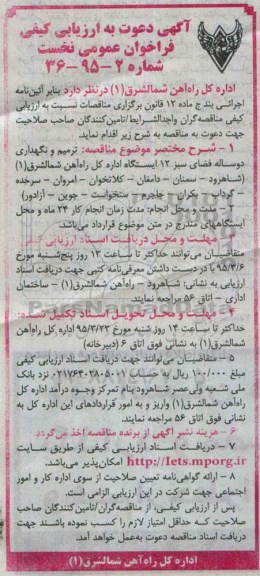 آگهی دعوت به ارزیابی کیفی
فراخوان عمومی نخست
شماره ۲-۹۵-۳۶
اداره کل راه‌آهن شمالشرق(۱) درنظر دارد بنابر آئین‌نامه
اجرائی بند ج ماده ۱۲ قانون برگزاری مناقصات نسبت به ارزیابی
کیفی مناقصه‌گران واجدالشرایط/تامین‌کنندگان صاحب صلاحیت
جهت دعوت به مناقصه به شرح زیر اقدام نماید.
۱- شرح مختصر موضوع مناقصه: ترمیم و نگهداری
دوساله فضای سبز ۱۲ ایستگاه اداره کل راه‌آهن شمالشرق(۱)
(شاهرود - سمنان - دامغان - کلاتخوان - امروان - سرخده
- گرداب - بکران - جاجرم - سنخواست - جوین - آزادور)
۲- مدت و محل انجام: مدت زمان انجام کار ۲۴ ماه و محل
ایستگاههای مندرج در متن موضوع قرارداد می‌باشد.
۳- مهلت و محل دریافت اسناد ارزیابی کیفی
متقاضیان می‌توانند حداکثر تا ساعت ۱۲ روز پنج‌شنبه مورخ
۹۵/۳/۶ با در دست داشتن معرفی‌نامه کتبی جهت دریافت اسناد
ارزیابی به نشانی: شاهرود - راه‌آهن شمالشرق(۱) - ساختمان
اداری - اتاق ۵۶ مراجعه نمایند.
۴- مهلت و محل تحویل اسناد تکمیل شده:
حداکثر تا ساعت ۱۴ روز شنبه مورخ ۹۵/۳/۲۲ اداره کل راه‌آهن
شمالشرق(۱) به نشانی فوق اتاق ۶ (دبیرخانه)
۵- متقاضیان می‌توانند جهت دریافت اسناد ارزیابی کیفی
مبلغ ۱۰۰/۰۰۰ ریال به حساب ۰۲۱۷۶۴۰۲۸۰۵۰۰۱ نزد بانک
ملی شعبه ولی‌عصر شاهرود بنام تمرکز وجوه درآمد اداره کل
راه‌آهن شمالشرق(۱) واریز و به امور قراردادهای این اداره کل به
نشانی فوق اتاق ۵۶ مراجعه نمایند.
۶- هزینه نشر آگهی از برنده مناقصه اخذ می‌گردد.
۷- دریافت اسناد ارزیابی کیفی از طریق سایت
http://Iets.mporg.ir امکان‌پذیر می‌باشد.
۸- ارائه گواهی‌نامه تعیین صلاحیت از سوی اداره کار و امور
اجتماعی جهت شرکت در این ارزیابی الزامی است.
پس از ارزیابی کیفی، از مناقصه‌گران/تامین‌کنندگان صاحب
صلاحیت که حداقل امتیاز لازم را کسب نموده باشند جهت
دریافت اسناد مناقصه دعوت به‌عمل خواهد آمد.
اداره کل راه‌آهن شمالشرق(۱)